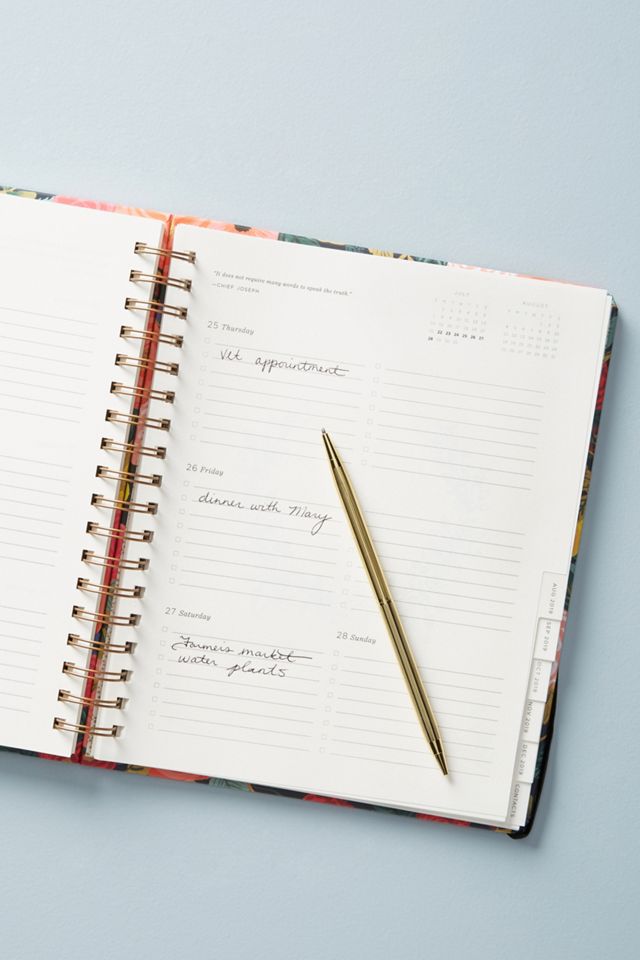 "It does not require many words to speak the truth."
—CHIEF JOSEPH
JULY
AUGUST
22 23 24 25 26 27
28
25 Thursday
Vet appointment
26 Friday
dinner with Mary
27 Saturday
Farmers market
water plants
28 Sunday
AUG 2019
SEP 2019
OCT 2019
NOV 2019
DEC 2019
CONTACTS